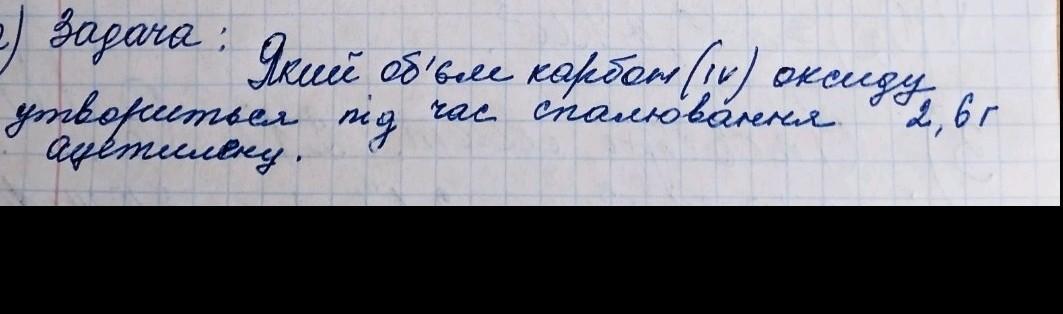 ) Задача:
Який об'єм карбон (IV) оксиду
утвориться під час спалювання 2,6 г
ацетилену.